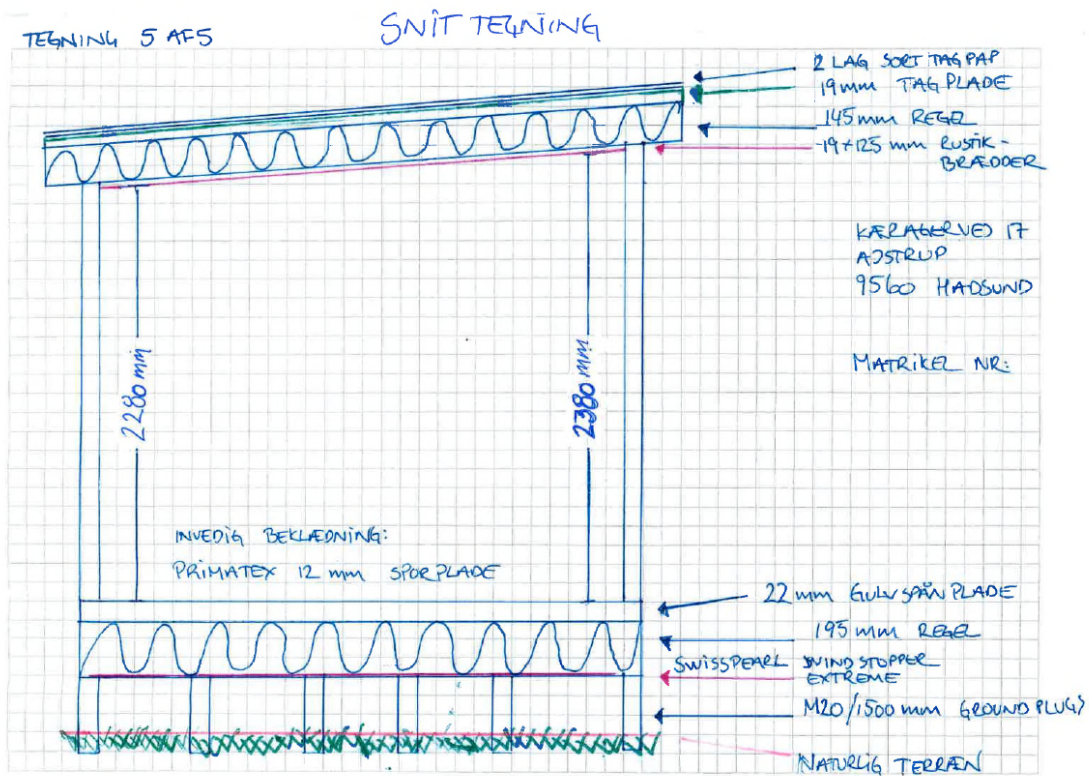 TEGNING 5 AF5
SNIT TEGNING
2 LAG SORT TAGPAP
19mm TAGPLADE
145mm REGEL
19+125 mm RUSTIK-
BRÆDDER
KÆRAGERVEJ 17
AJSTRUP
9560 HADSUND
MATRIKEL NR:
2280mm
2380mm
INVEDIG BEKLÆDNING:
PRIMATEX 12 mm SPORPLADE
22mm GULVSPÅNPLADE
195mm REGEL
SWISSPEARL WINDSTOPPER
EXTREME
M20/1500mm GROUNDPLUGS
NATURLIG TERRÆN